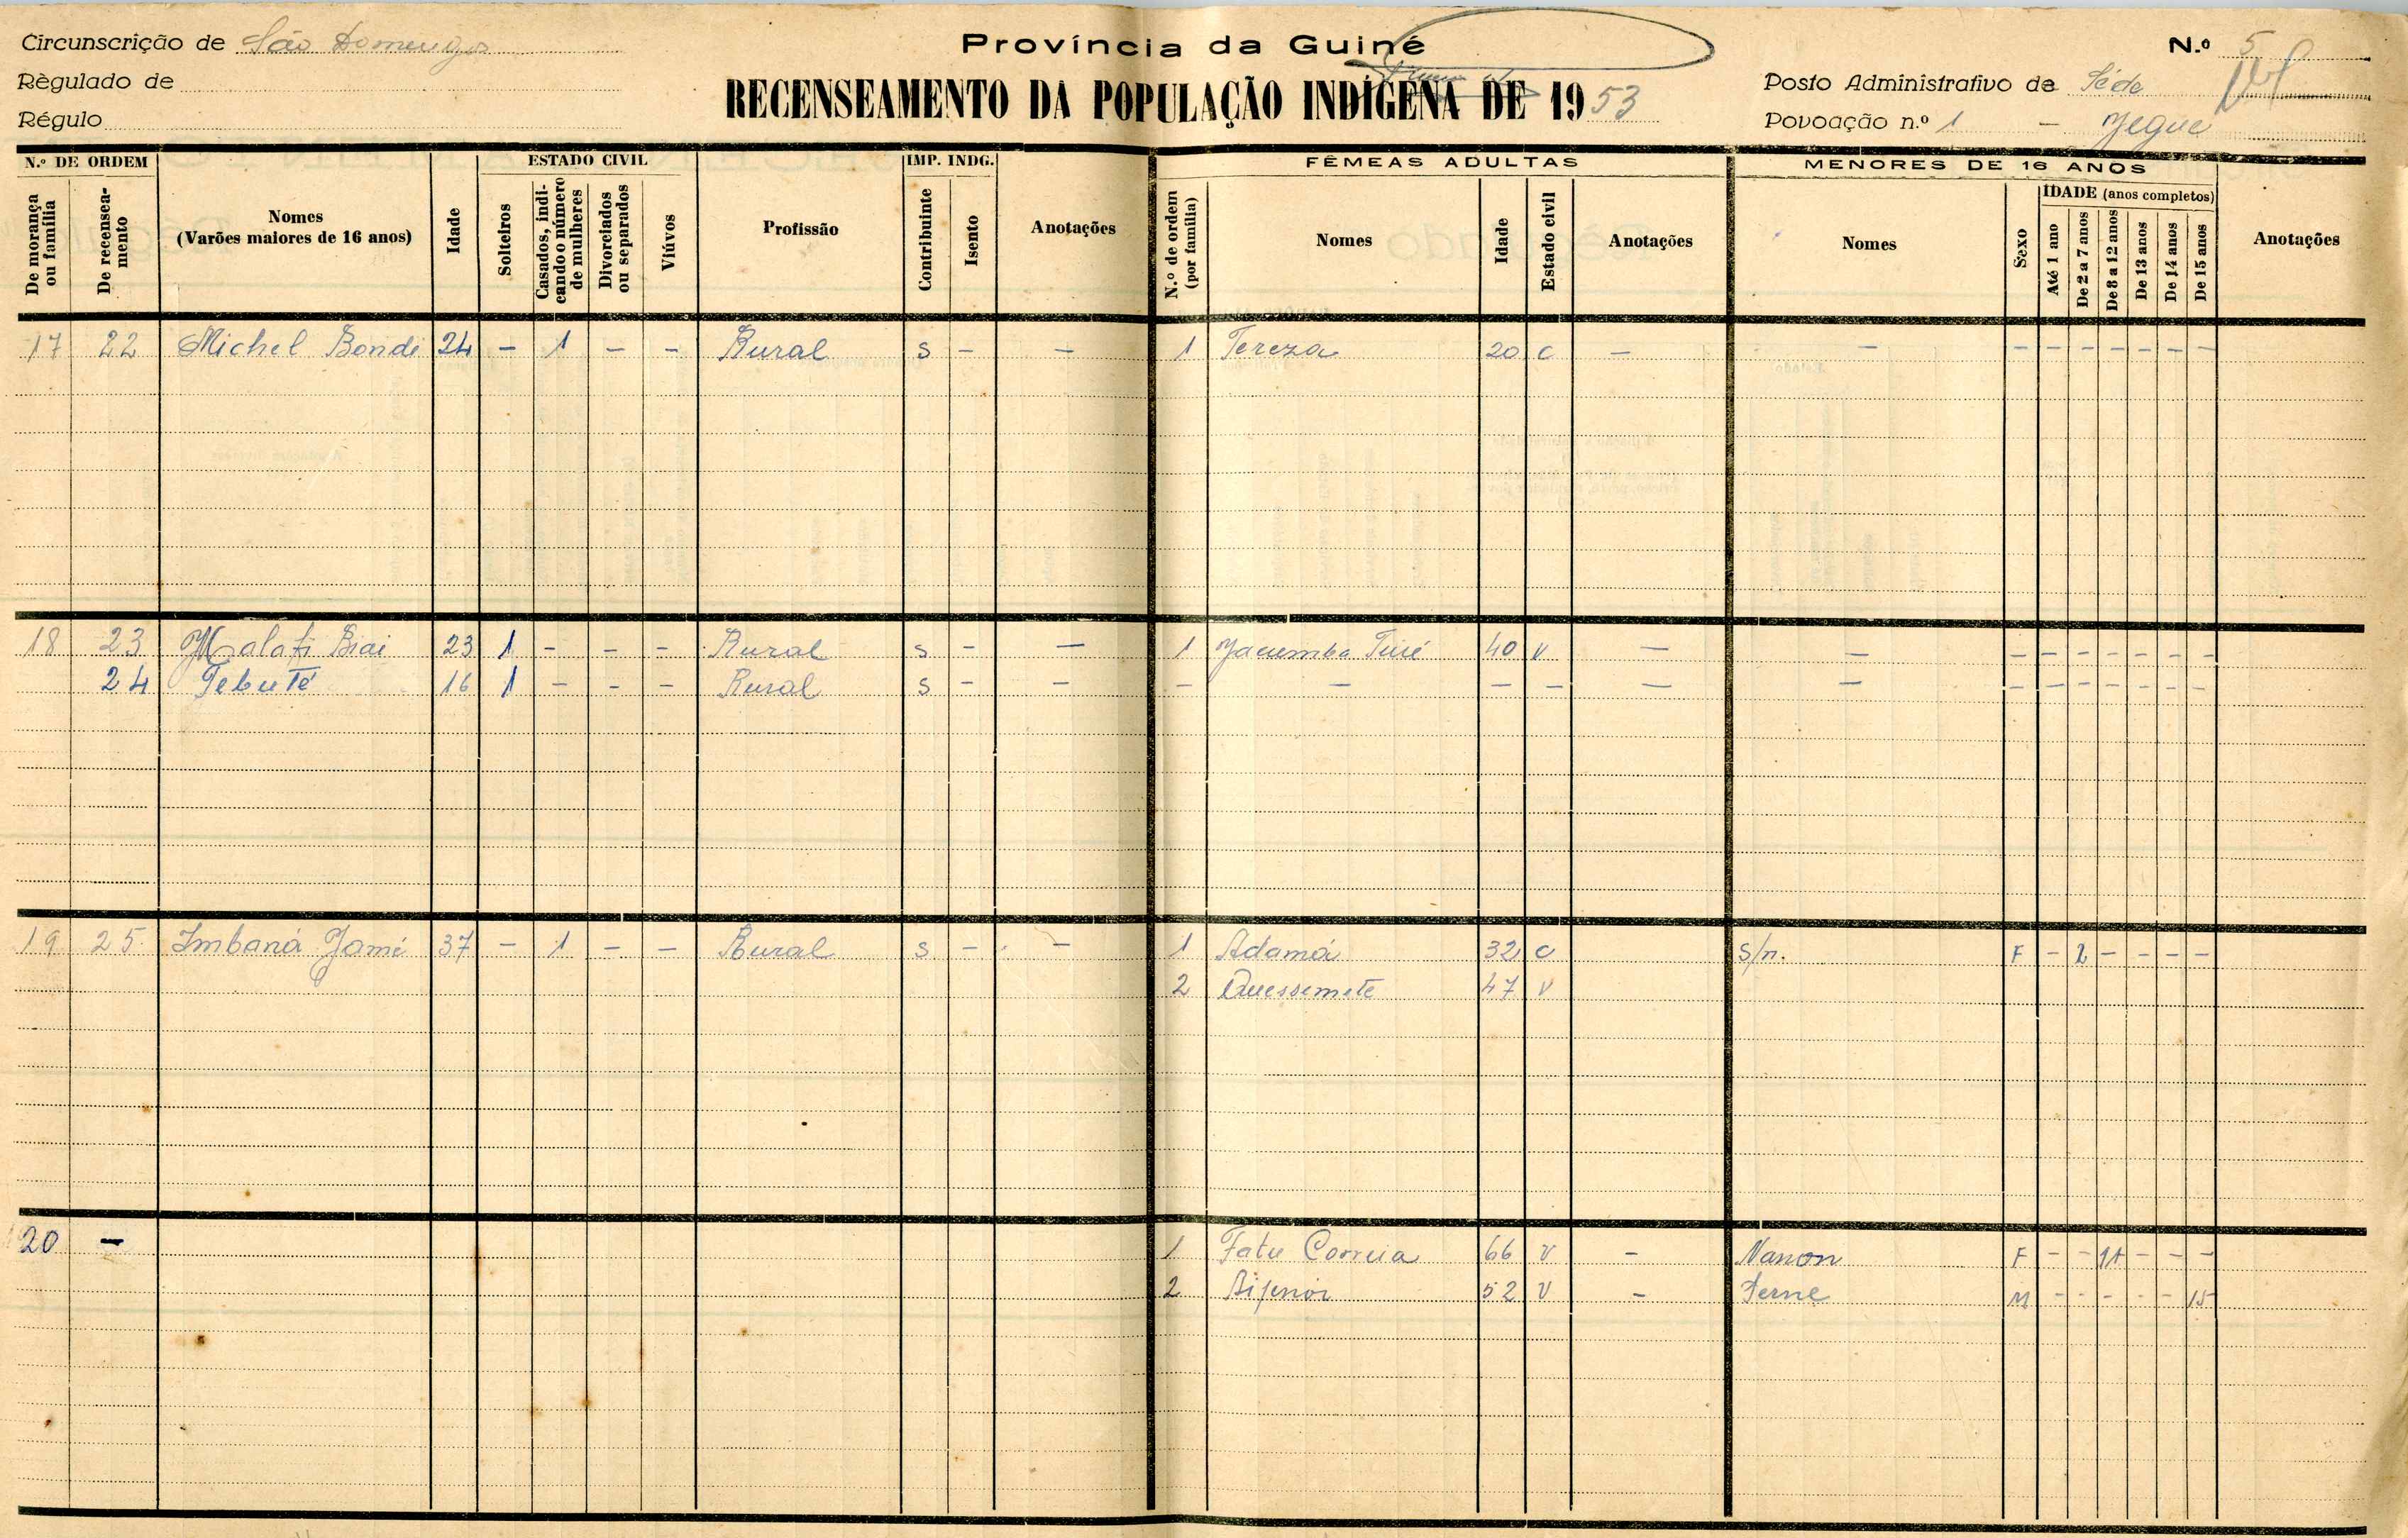 Circunscrição de São Domingos
Província da Guiné
N.º 5
Règulado de
RECENSEAMENTO DA POPULAÇÃO INDÍGENA DE 1953
Posto Administrativo de Séde
Régulo
Povoação n.º 1 - Jegue
N.º DE ORDEM
ESTADO CIVIL
IMP. INDG.
FÊMEAS ADULTAS
MENORES DE 16 ANOS
De morança ou família
De recenseamento
Nomes (Varões maiores de 16 anos)
Idade
Solteiros
Casados, indicando o número de mulheres
Divorciados ou separados
Viúvos
Profissão
Contribuinte
Isento
Anotações
N.º de ordem (por família)
Nomes
Idade
Estado civil
Anotações
Nomes
Sexo
IDADE (anos completos)
Até 1 ano
De 2 a 7 anos
De 8 a 12 anos
De 13 anos
De 14 anos
De 15 anos
Anotações
17 22 Michel Bondi 24 - 1 - - Rural S - - 1 Tereza 20 C - - - - - - - - -
18 23 Malafi Biai 23 1 - - - Rural S - - 1 Jacumba 40 V - - - - - - - - -
24 Tebuté 16 1 - - - Rural S - - - - - - - - - - - - - - -
19 25 Imbaná Jamé 37 - 1 - - Rural S - - 1 Adamá 32 C S/n. F - 2 - - - -
2 Quessemete 47 V
20 - 1 Fatu Correia 66 V - Nanon F - - 11 - - -
2 52 V - M - - - - - 15